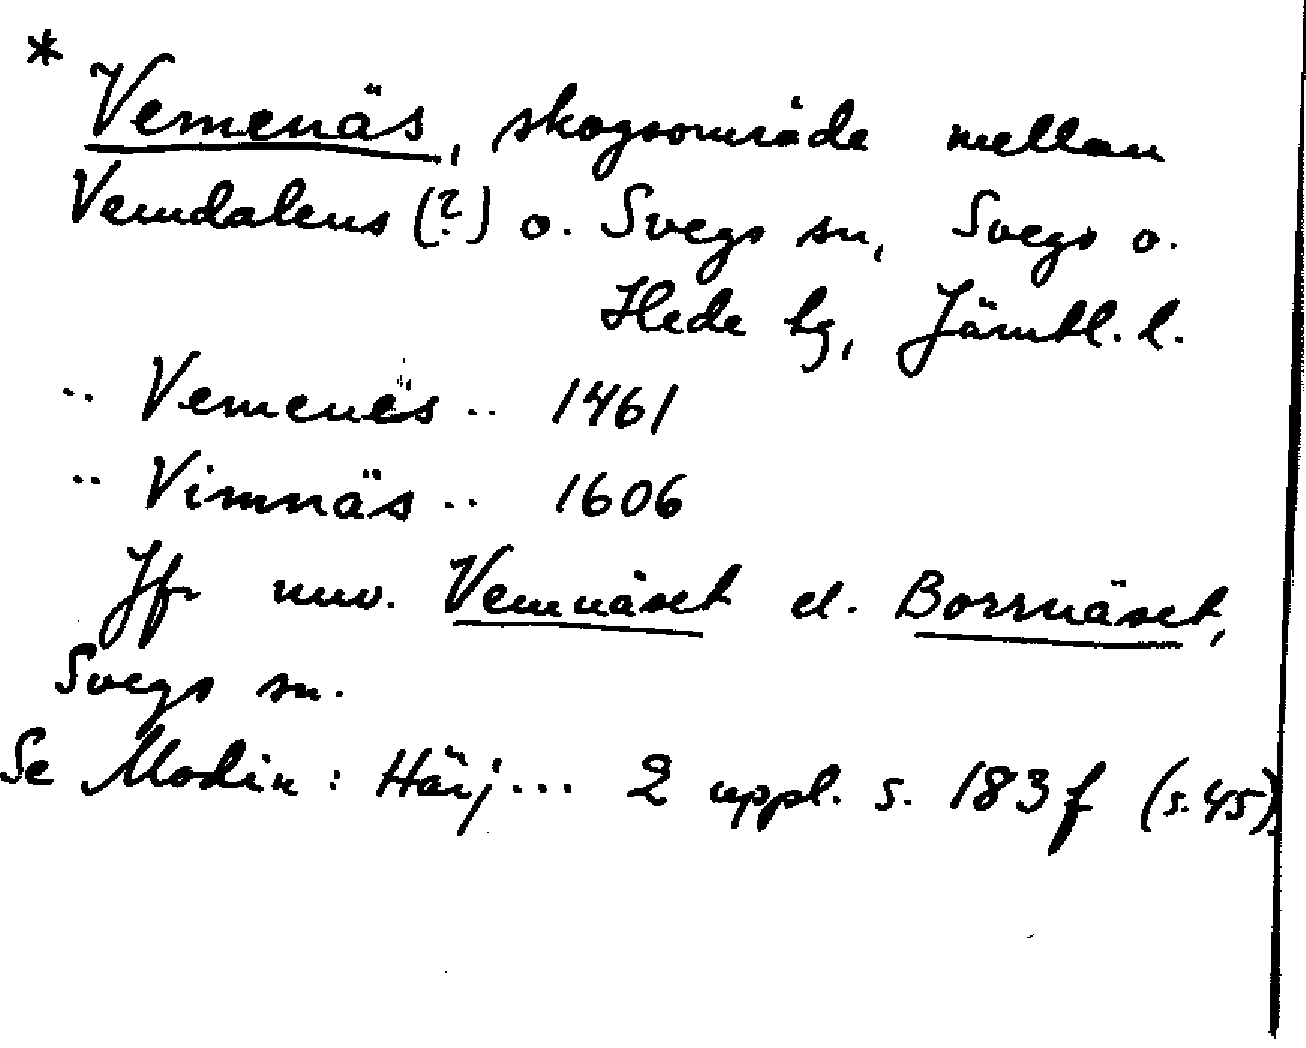 * Vemenäs, skogsområde mellan
Vemdalens (?) o. Svegs sn, Svegs o.
Hede tg, Jämtl. l.
.. Vemenes .. 1461
.. Vimnäs .. 1606
Jfr nuv. Vemnäset el. Borrnäset,
Svegs sn.
Se Modin: Härj... 2 uppl. s. 183 f (s. 45)